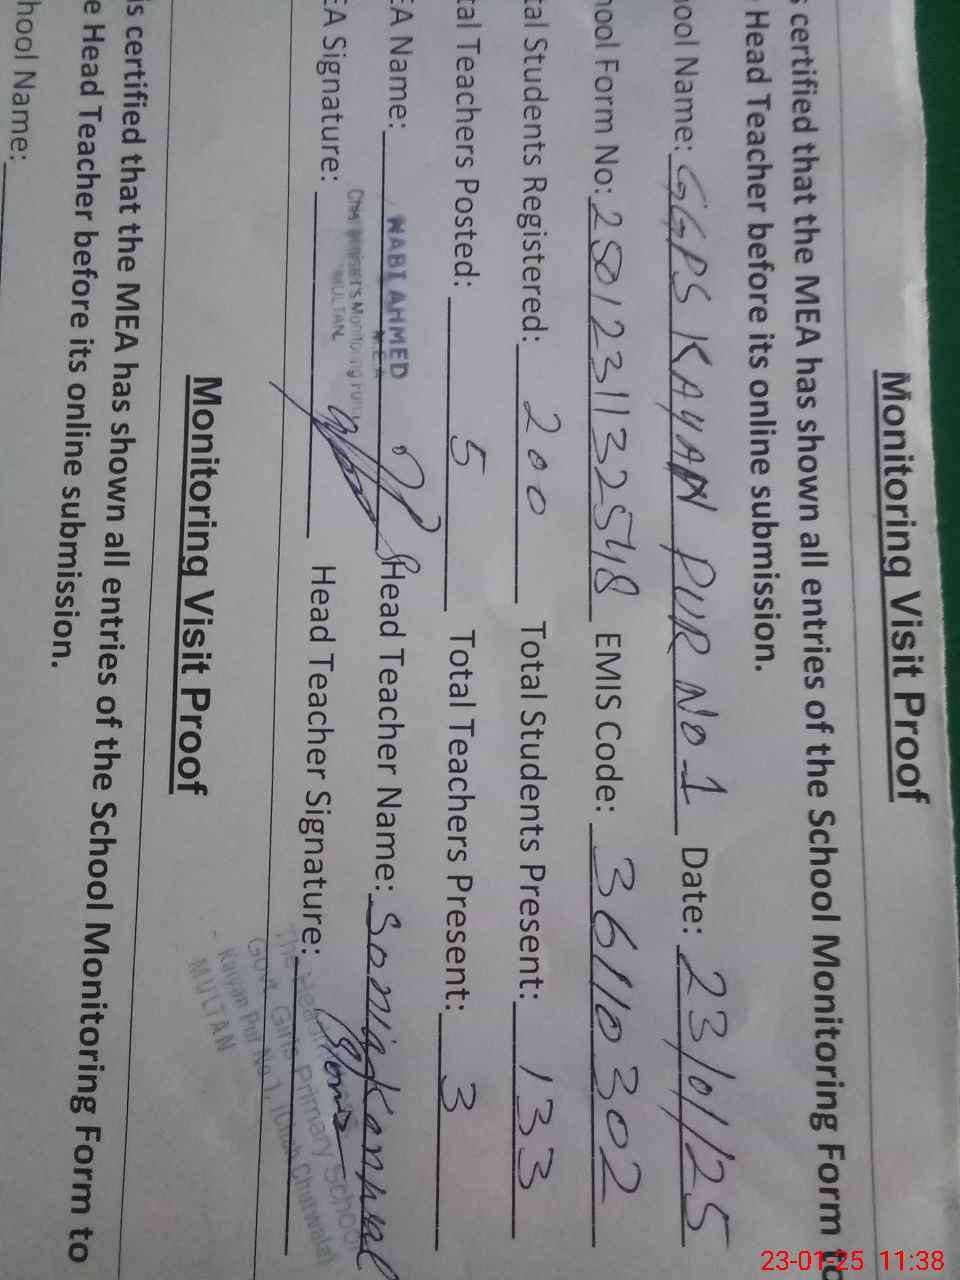 Monitoring Visit Proof
s certified that the MEA has shown all entries of the School Monitoring Form to
Head Teacher before its online submission.
ool Name: GGPS KAYAN PUR No 1 Date: 23/01/25
ool Form No: 2501231132548 EMIS Code: 36110302
tal Students Registered: 200 Total Students Present: 133
tal Teachers Posted: 5 Total Teachers Present: 3
EA Name: WABI AHMED Head Teacher Name: Sonia Kanwal
M.E.A
Monitoring
MULTAN
EA Signature: Head Teacher Signature:
Govt. Girls Primary School
Kaiyan Pur No 1,
MULTAN
Monitoring Visit Proof
is certified that the MEA has shown all entries of the School Monitoring Form to
e Head Teacher before its online submission.
hool Name:
23-01-25 11:38